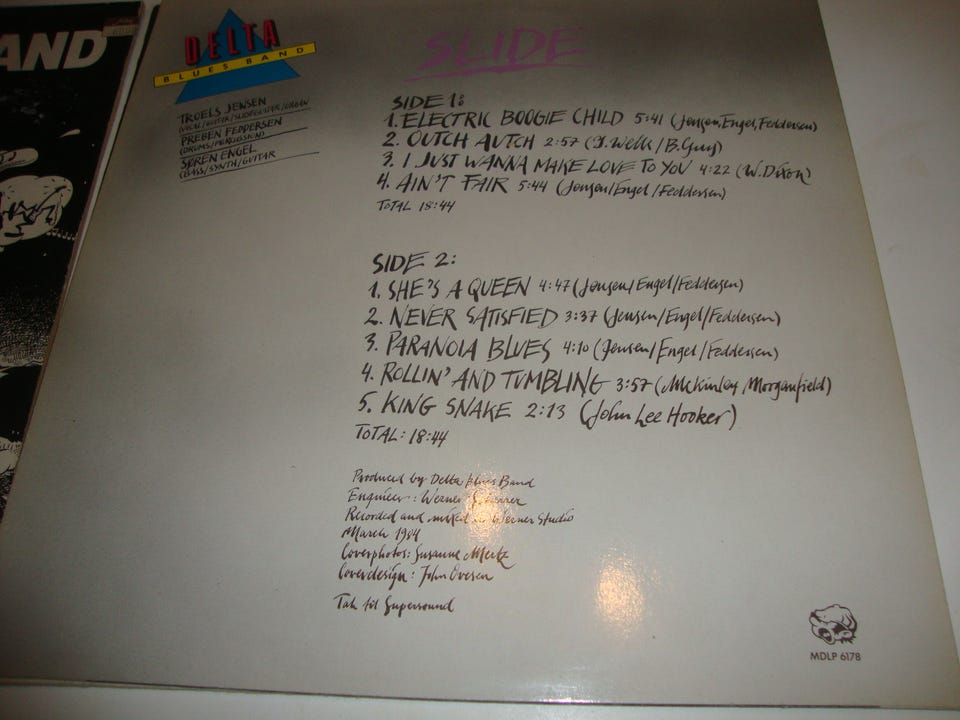 AND
DELTA
BLUES BAND
SLIDE
TROELS JENSEN
(VOCAL/GUITAR/SLIDEGUITAR/ORGAN)
PREBEN FEDDERSEN
(DRUMS/PERCUSSION)
SØREN ENGEL
(BASS/SYNTH/GUITAR
SIDE 1:
1. ELECTRIC BOOGIE CHILD 5:41 (Jensen, Engel, Feddersen)
2. OUTCH AUTCH 2:57 (J. Wells/B. Guy)
3. I JUST WANNA MAKE LOVE TO YOU 4:22 (W. Dixon)
4. AIN'T FAIR 5:44 (Jensen/Engel/Feddersen)
TOTAL 18:44
SIDE 2:
1. SHE'S A QUEEN 4:47 (Jensen/Engel/Feddersen)
2. NEVER SATISFIED 3:37 (Jensen/Engel/Feddersen)
3. PARANOIA BLUES 4:10 (Jensen/Engel/Feddersen)
4. ROLLIN' AND TUMBLING 3:57 (McKinley Morganfield)
5. KING SNAKE 2:13 (John Lee Hooker)
TOTAL: 18:44
Produced by Delta Blues Band
Engineer: Werner
Recorded and mixed in Werner Studio
March 1984
Coverphotos: Susanne Mertz
Coverdesign: John Ovesen
Tak til Supersound
MDLP 6178